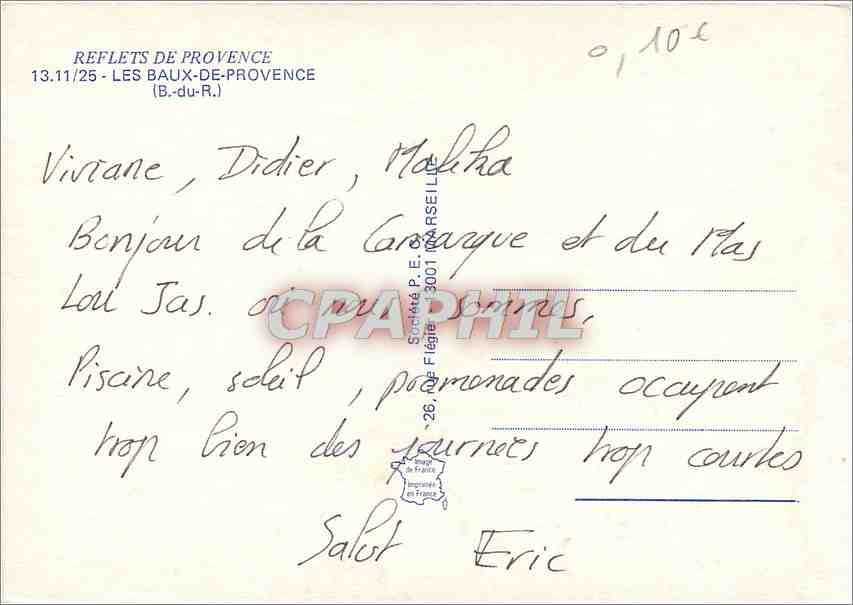 REFLETS DE PROVENCE
13.11/25 - LES BAUX-DE-PROVENCE
(B.-du-R.)
0,10€
Viviane, Didier, Malika
Bonjour de la Camargue et du Mas
Lou Jas. où nous sommes,
Piscine, soleil, promenades occupent
trop bien des journées trop courtes
Salut Eric
Société P. E. C.
26, rue Flégier - 13001 MARSEILLE
CPAPHIL
Image
de France
Imprimée
en France